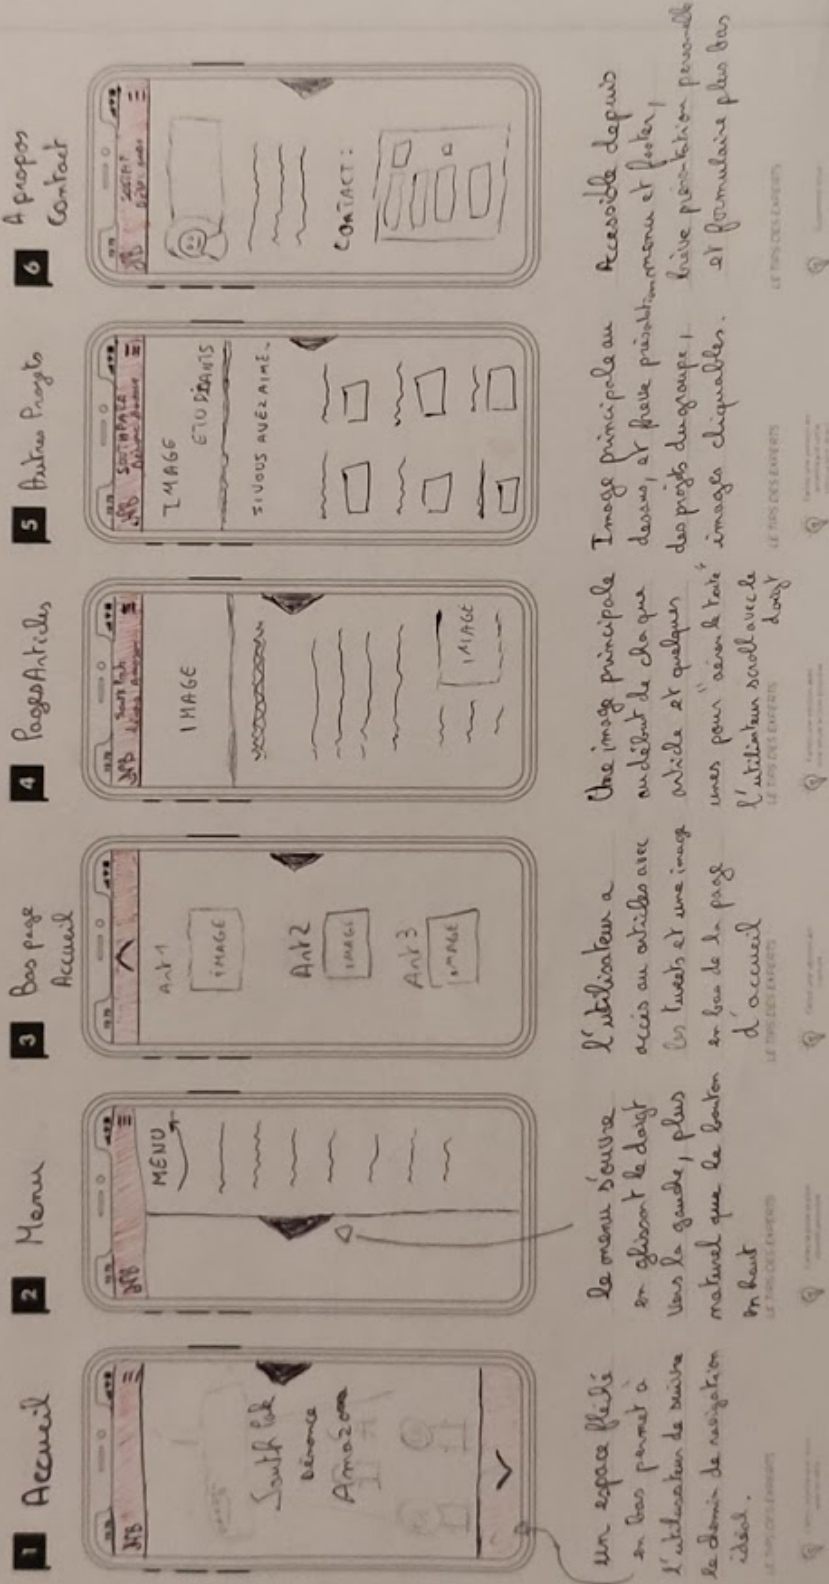 1 Accueil
NB
South Park
Dénonce
Amazon
un espace fléché
en bas permet à
l'utilisateur de suivre
le chemin de navigation
idéal.
LE TIPS DES EXPERTS
2 Menu
NB
MENU
le menu s'ouvre
en glissant le doigt
vers la gauche, plus
naturel que le bouton
en haut
LE TIPS DES EXPERTS
3 Bas page
Accueil
Art 1
IMAGE
Art 2
IMAGE
Art 3
IMAGE
l'utilisateur a
accès au articles avec
les tweets et une image
en bas de la page
d'accueil
LE TIPS DES EXPERTS
4 Pages Articles
NB South Park
IMAGE
IMAGE
Une image principale
au début de chaque
article et quelques
unes pour "aérer le texte"
l'utilisateur scroll avec le
doigt
LE TIPS DES EXPERTS
5 Autres Projets
NB SOUTHPARK
IMAGE
ETUDIANTS
SI VOUS AVEZ AIMÉ.
Image principale au
dessus, et brève présentation
des projets du groupe,
images cliquables.
LE TIPS DES EXPERTS
6 A propos
Contact
NB
CONTACT:
Accessible depuis
menu et footer,
brève présentation personnelle
et formulaire plus bas
LE TIPS DES EXPERTS